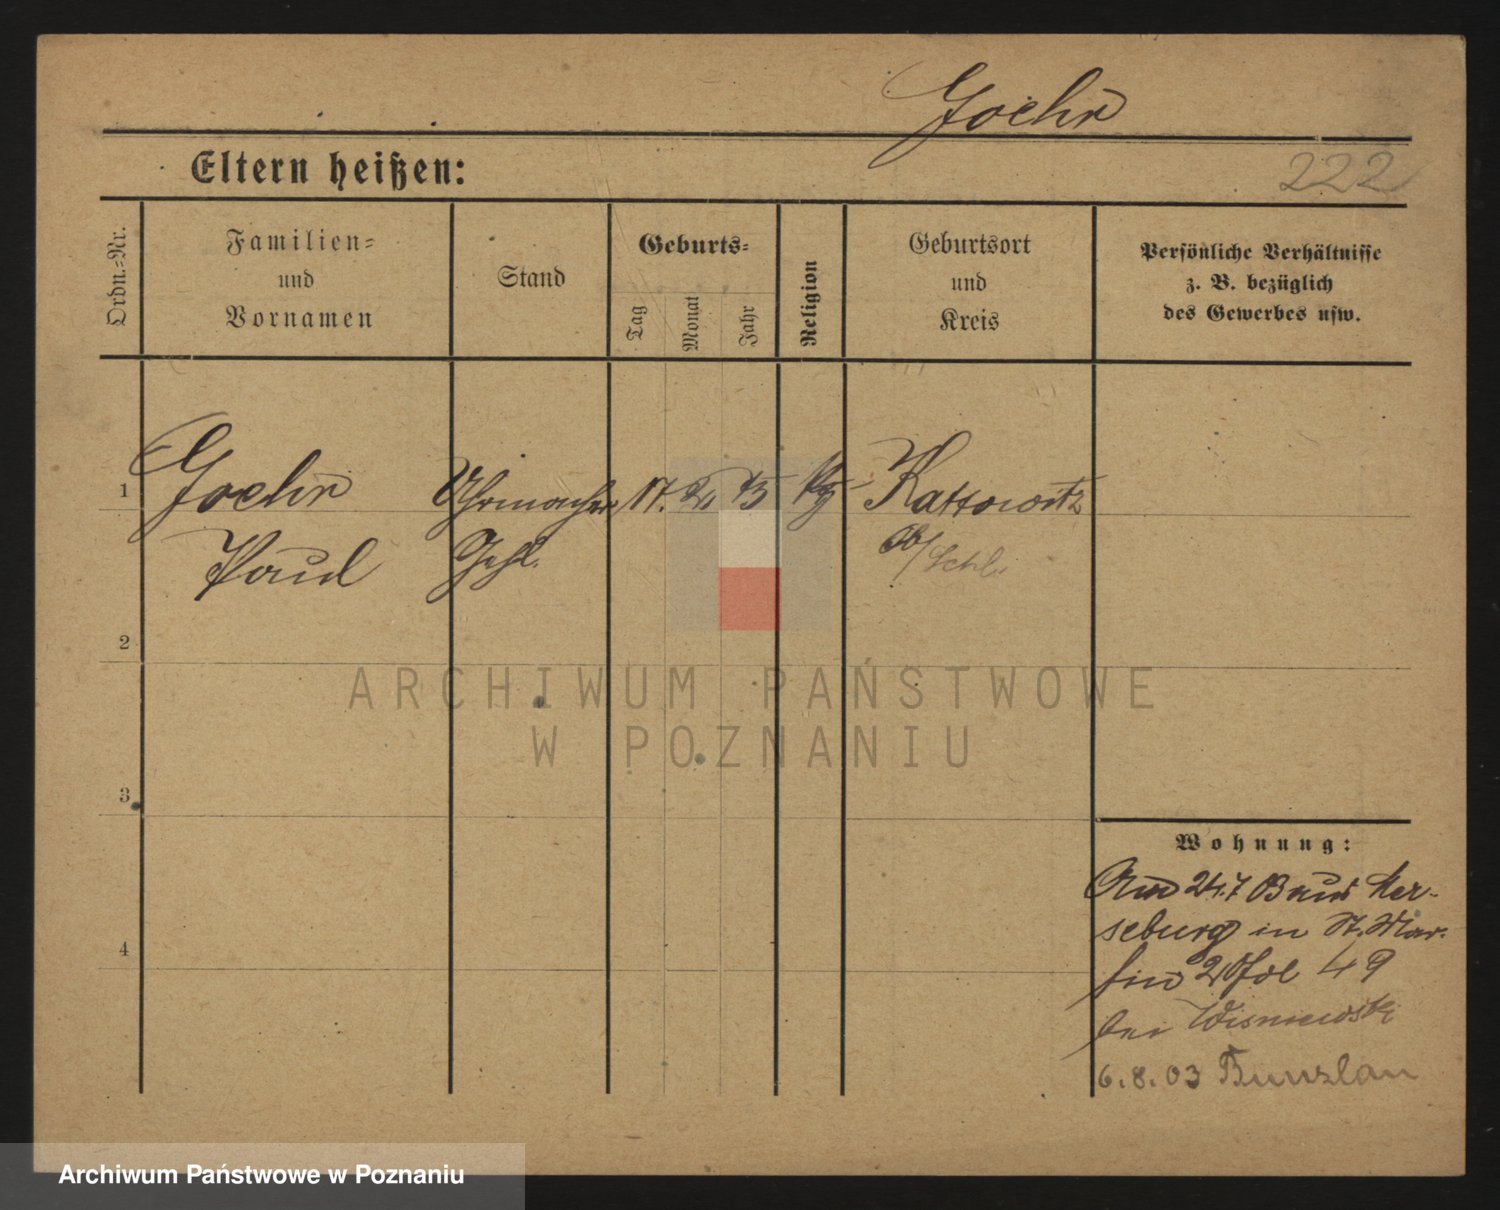 Goehr
Eltern heißen:
222
Ordn.-Nr.
Familien-
und
Vornamen
Stand
Geburts-
Tag
Monat
Jahr
Religion
Geburtsort
und
Kreis
Persönliche Verhältnisse
z. B. bezüglich
des Gewerbes usw.
1
Goehr Uhrmacher 17. 2. 75 Kattowitz
Paul Gehl. Ob/Schl.
2
3
4
Wohnung:
24.7 aus Mer-
seburg in St. Mar-
tin 49
bei Wisniewski
6.8.03 Bunzlau
ARCHIWUM PAŃSTWOWE
W POZNANIU
Archiwum Państwowe w Poznaniu